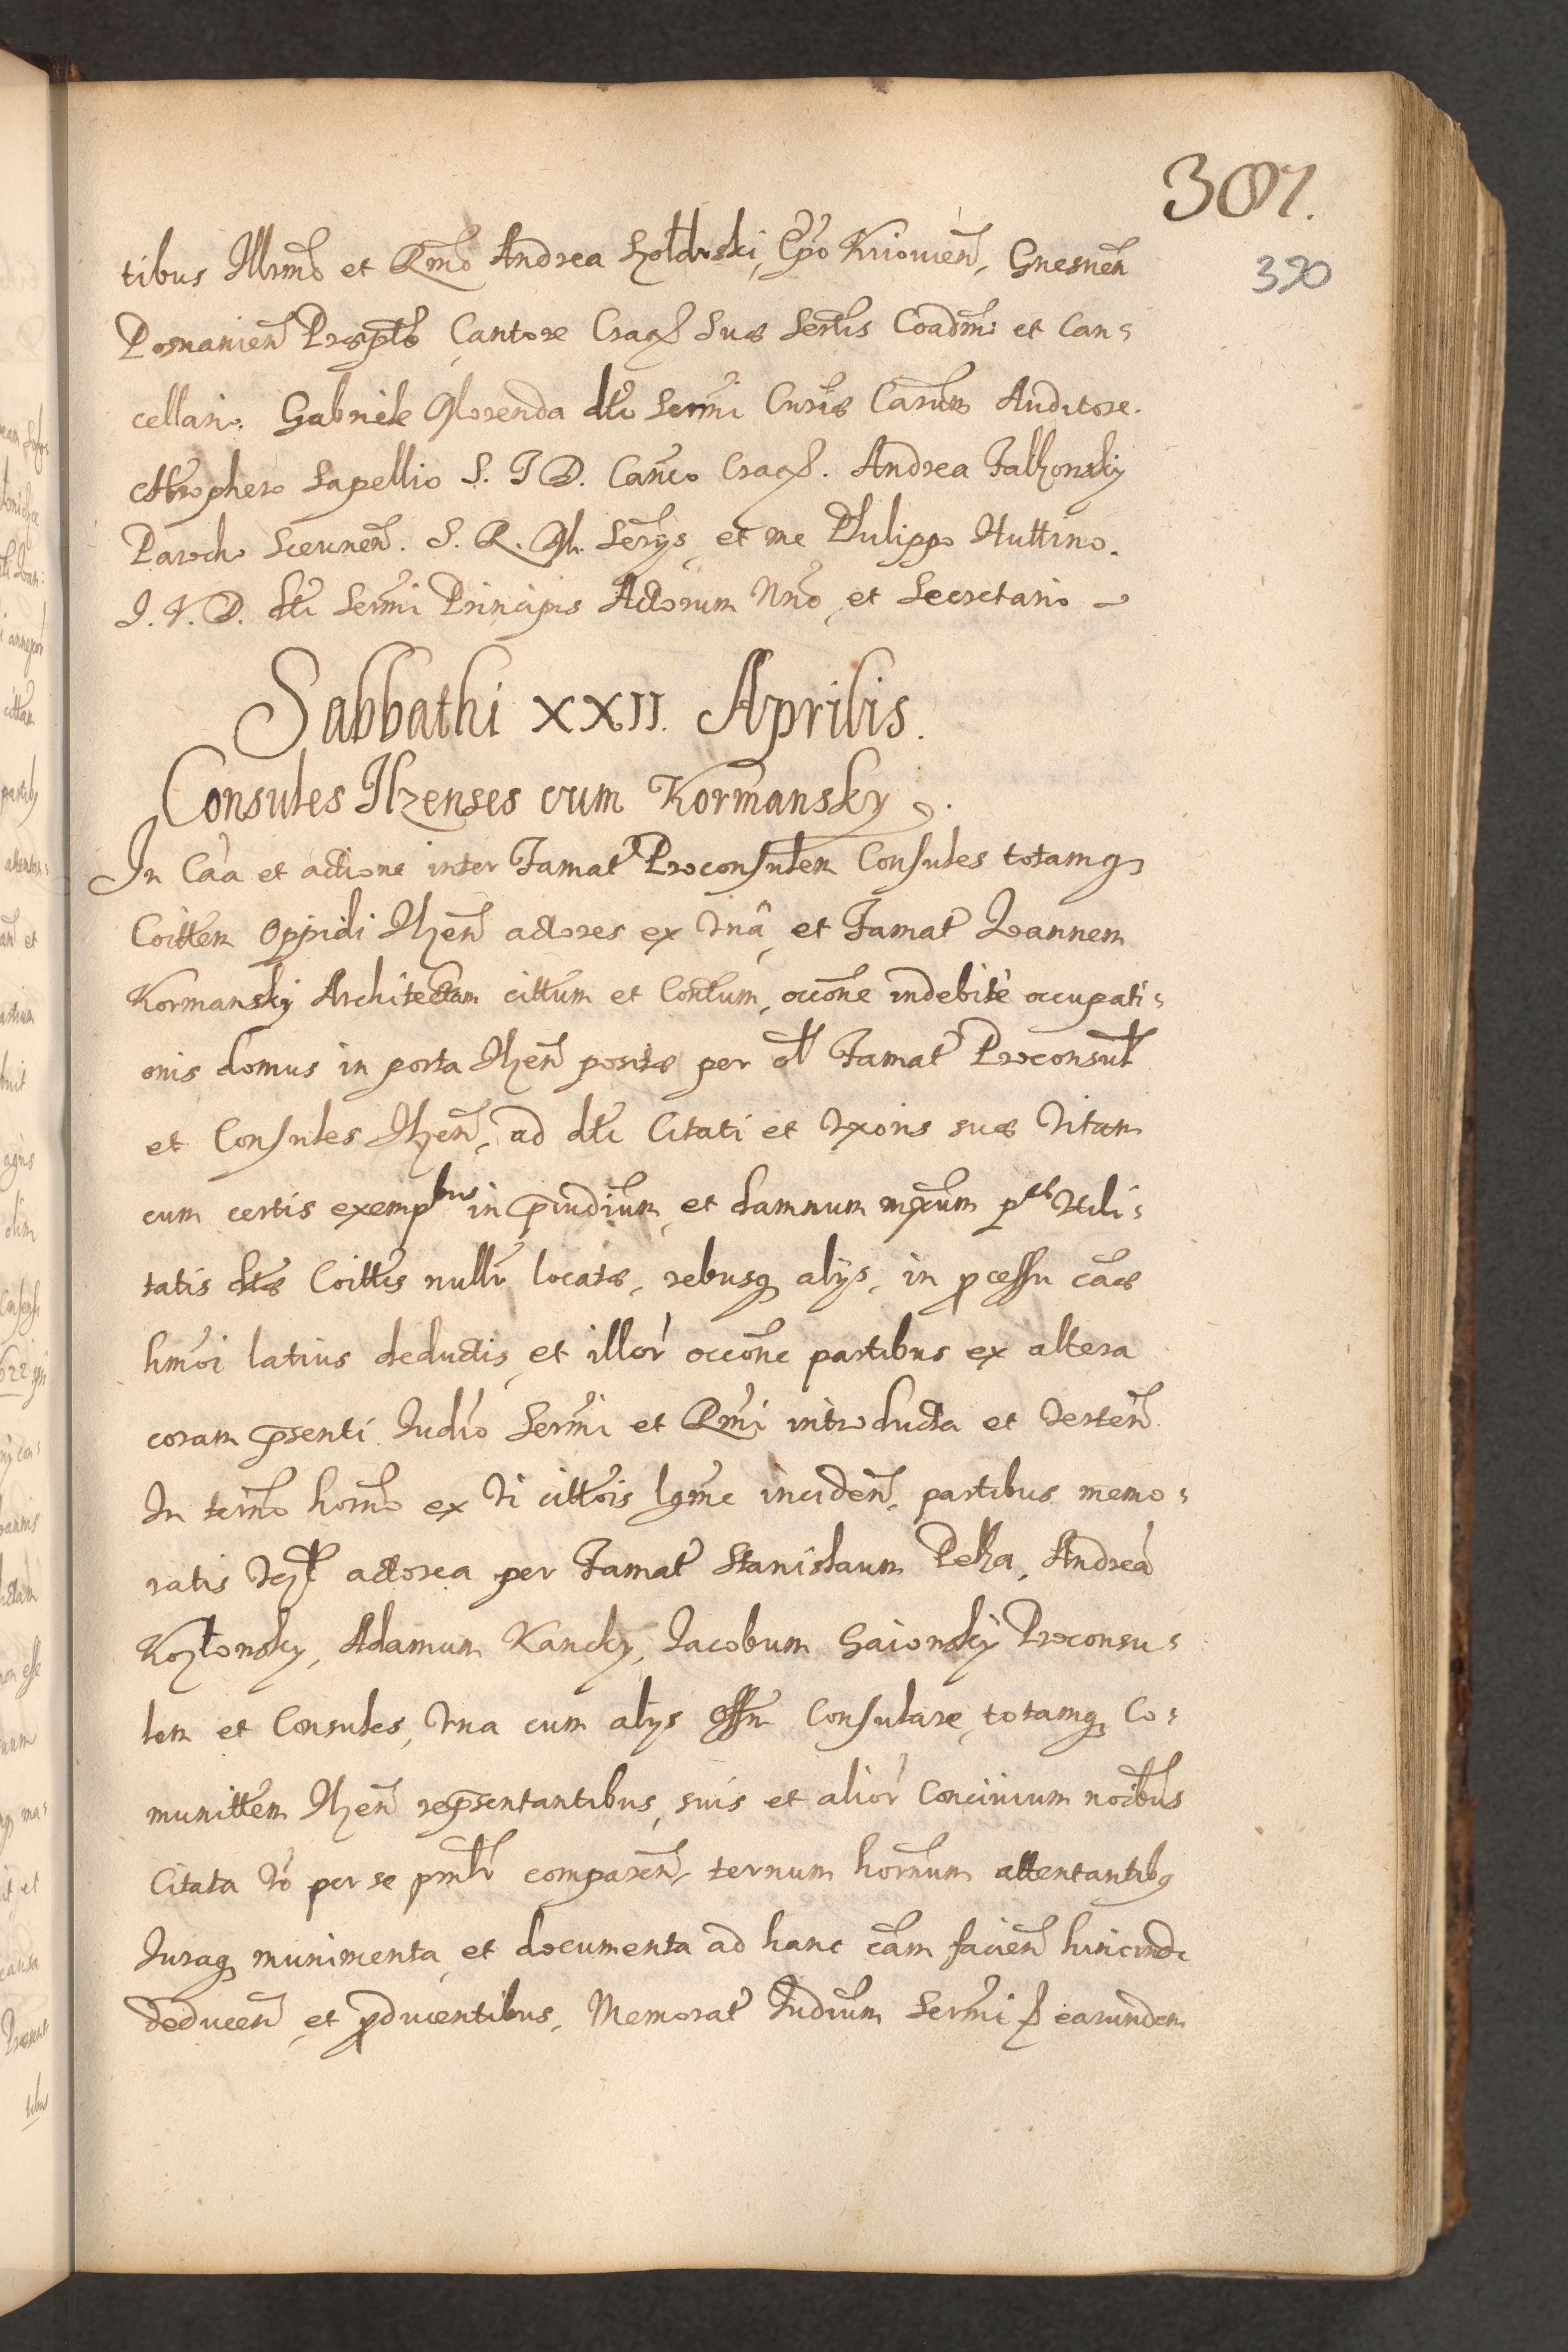 387.
390
tibus Illrmo et Rmo Andrea Szołdrski, Epo Kiiouien, Gnesnen
Posnanien Præpto Cantore Crac. Suæ Sertis Coadm: et Can=
cellario, Gabriele Morenda dti Sermi Curiæ Carum Auditore.
Chrophero Sapellio S. T D. Canco Crac. Andrea Falkonsky
Parocho S. R. M. Serys, et me Philippo Huttino.
I. V. D. dti Sermi Principis Actorum Nrio, et Secretario
Sabbathi XXII. Aprilis.
Consules Ilzenses cum Kormansky.
In Caa et actione inter Famat Proconsulem Consules totamq
Coittem Oppidi Ilzen actores ex vna, et Famat Ioannem
Kormansky Architectam cittum et Contum, occone indebitè occupati=
onis domus in porta Ilzen positæ per ol Famat Proconsul
et Consules Ilzen, ad dti Citati et Vxoris suæ vitam
cum certis exempbus in præiudium, et damnum mxum Vtili=
tatis dtæ Coittis nullr locatæ, rebusq alijs, in pcessu caæ
hmoi latius deductis, et illor occone partibus ex altera
coram psenti Iudio Sermi et Rmi introducta et verten
In termo horno ex vi cittois lgme inciden, partibus memo=
ratis vzt actorea per Famat Stanislaum Pelka, Andreã
Kozłonsky, Adamum Kancky, Iacobum Gaionsky Proconsu=
lem et Consules, vna cum alys offm Consulare, totamq Co=
munittem Ilzen repsentantibus, suis et alior Conciuium noibus
Citata vo per se pnlr comparen, ternum hornum attentantibq
Iuraq munimenta et documenta ad hanc cam facien hincinde
deducen et pducentibus, Memorat Iudium Sermi earundem